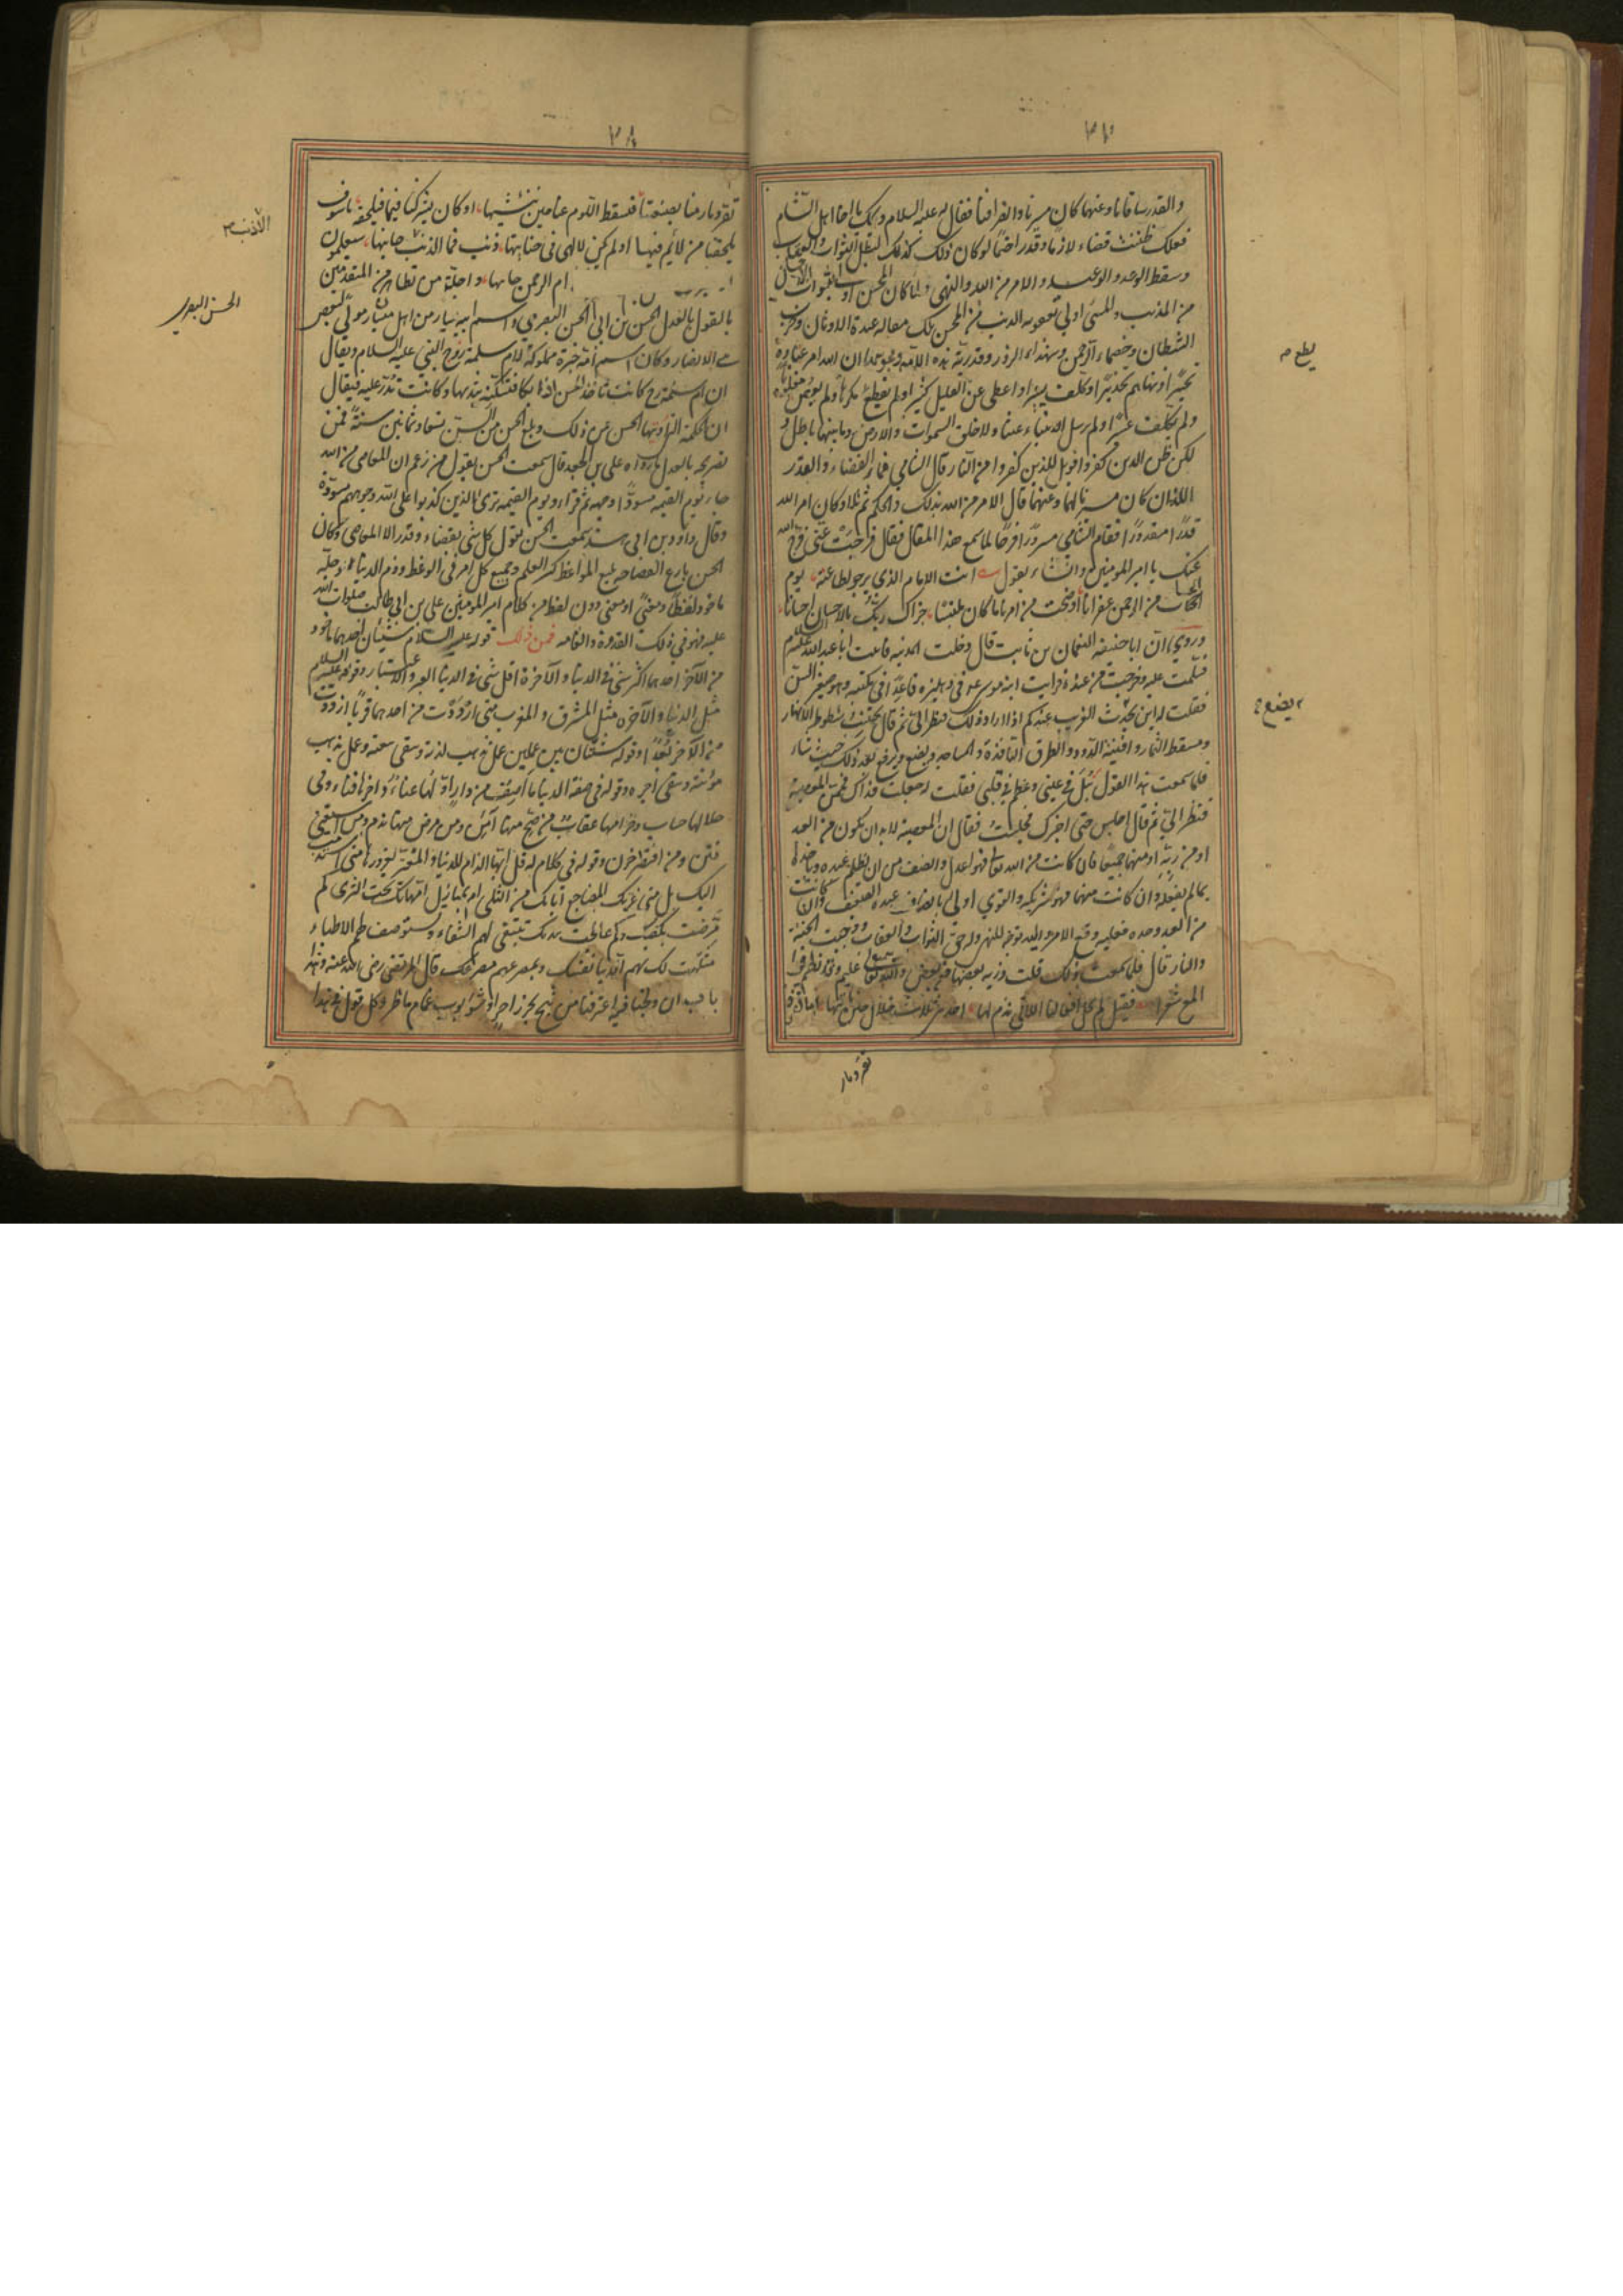 والقدر ساقانا وعنهما كان مسيرنا وانصرافنا فقال له عليه السلام ويحك يا اخا اهل الشام
فعلك ظننت قضاء لازما وقدرا حتما لو كان ذلك كذلك لبطل الثواب والعقاب
وسقط الوعد والوعيد والامر من الله والنهي ولما كان المحسن اولى بثواب الاحسان
من المذنب والمسئ اولى بعقوبه الذنب من المحسن تلك مقاله عبدة الاوثان وحزب
الشيطان وخصماء الرحمن وشهداء الزور وقدرية هذه الامة ومجوسها ان الله امر عباده
تخييرا ونهاهم تحذيرا وكلف يسيرا واعطى عن القليل كثيرا ولم يطع مكرها ولم يعص مغلوبا
ولم يكلف عسرا ولم يرسل الانبياء عبثا ولا خلق السموات والارض وما بينهما باطل و
لك ظن الذين كفروا فويل للذين كفروا من النار قال الشامي فما القضاء والقدر
اللذان كان مسيرنا بهما وعنهما قال الامر من الله بذلك والحكم ثم تلا وكان امر الله
قدرا مقدورا فقام الشامي مسرورا فرحا لما سمع هذا المقال فقال فرجت عني فرج الله
عنك يا امير المومنين وانشاء يقول انت الامام الذي نرجو لطاعته يوم
الحساب من الرحمن غفرانا اوضحت من امرنا ما كان ملتبسا جزاك ربك بالاحسان احسانا
وروي ان ابا حنيفه النعمان بن ثابت قال دخلت المدينه فاتيت ابا عبد الله عليه السلام
فسلمت عليه وخرجت من عنده فرايت ابنه موسى عم في دهليزه قاعدا في مكتبه وهو صغير السن
فقلت له اين يحدث الغريب عندكم اذا اراد ذلك فنظر الي ثم قال يجتنب شطوط الانهار
ومسقط الثمار وافنية الدور والطرق النافذة والمساجد ويضع ويرفع بعد ذلك حيث شاء
فلما سمعت هذا القول نبل في عيني وعظم في قلبي فقلت له جعلت فداك فممن المعصية
فنظر الي ثم قال اجلس حتى اخبرك فجلست فقال ان المعصية لا بد ان تكون من العبد
او من ربه او منهما جميعا فان كانت من الله تعالى فهو اعدل وانصف من ان يظلم عبده وياخذه
بما لم يفعله وان كانت منهما فهو شريكه والقوي اولى بانصاف عبده الضعيف وان كانت
من العبد وحده فعليه وقع الامر واليه توجه النهي وله حق الثواب والعقاب ووجبت الجنة
والنار قال فلما سمعت ذلك قلت ذرية بعضها من بعض والله سميع عليم وقد نظم هذا
المع شعرا فقيل لم تخل افعالنا اللاتي نذم لها احدى ثلاث خلال حين ناتيها اما
تفرد بار
لطع م
يضع م
تفرد بارينا بصنعتها فيسقط اللوم عنا حين ننشيها او كان يشركنا فيها فيلحقه ما سوف
يلحقنا من لائم فيها او لم يكن لالهي في جنايتها ذنب فما الذنب الا ذنب جانيها سيعلمون
ام الرحمن جانيها واحد من تظاهر من المتقدمين
بالقول بالعدل الحسن بن ابي الحسن البصري واسم ابيه يسار من اهل ميسان مولى لبعض
الانصار وكان اسم امه خيرة مملوكة لام سلمة زوج النبي عليه السلام ويقال
ان ام سلمة رض كانت تاخذ الحسن اذا بكا فتسكته بثديها وكانت تدر عليه فيقال
ان الحكمة التي اوتيها الحسن من ذلك وبلغ الحسن من السن تسعا وثمانين سنة فمن
تصريحه بالعدل ما رواه علي بن الجعد قال سمعت الحسن يقول من زعم ان المعاصي من الله
جاء يوم القيمه مسودا وجهه ثم قراء ويوم القيمه ترى الذين كذبوا على الله وجوههم مسودة
وقال داود بن ابي هند سمعت الحسن يقول كل شئ بقضاء وقدر الا المعاصي وكان
الحسن بارع الفصاحه بليغ المواعظ كثير العلم وجميع كلامه في الوعظ وذم الدنيا وجله
ماخوذ لفظا ومعنى او معنى دون لفظ من كلام امير المومنين علي بن ابي طالب صلوات الله
عليه فهو في ذلك القدوة والغايه فمن ذلك قوله عليه السلام شيئان احدهما ماخوذ
من الآخر احدهما اكثر شئ في الدنيا والآخرة اقل شئ في الدنيا العبر والاعتبار وقوله عليه السلام
مثل الدنيا والآخره مثل المشرق والمغرب متى ازددت من احدهما قربا ازددت
من الآخر بعدا وقوله شتان بين عملين عمل تذهب لذته وتبقى تبعته وعمل تذهب
مؤنته وتبقى اجره وقوله في صفة الدنيا ما اصف من دار اولها عناء واخرها فناء وفي
حلالها حساب وحرامها عقاب من صح فيها امن ومن مرض فيها ندم ومن استغنى
فتن ومن افتقر حزن وقوله في كلام له قل ايها الذام للدنيا والمغتر بغرورها متى استذمت
اليك بل متى غرتك ابمضاجع آبائك من الثرى ام بمنازل امهاتك تحت الثرى كم
مرضت بكفيك وكم عالجت بيديك تبتغي لهم الشفاء وتستوصف لهم الاطباء
مثلت لك بهم الدنيا نفسك وبمصرعهم مصرعك قال المرتضى رضي الله عنه وهذا
باب ان ولجنا فيه اغترفنا من ثبج بحر زاخر او شؤبوب غمام ماطر وكل قول في هذا
الا ذنب م
الحسن البصري